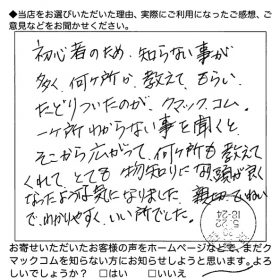 ◆当店をお選びいただいた理由、実際にご利用になったご感想、ご
意見などをお聞かせください。
初心者のため、知らない事が
多く、何ヶ所か、教えて、もらい、
たどりついたのが、クマック、コム。
一ヶ所わからない事を聞くと、
そこから広がって、何ヶ所も教えて
くれて、とても物知りになり頭が良く
なったような気になりました。親切ていねい
で、わかりやすく、いい所でした。
お寄せいただいたお客様の声をホームページなどで、まだク
マックコムを知らない方にお知らせしようと思います。よろ
しいでしょうか？ □はい □いいえ